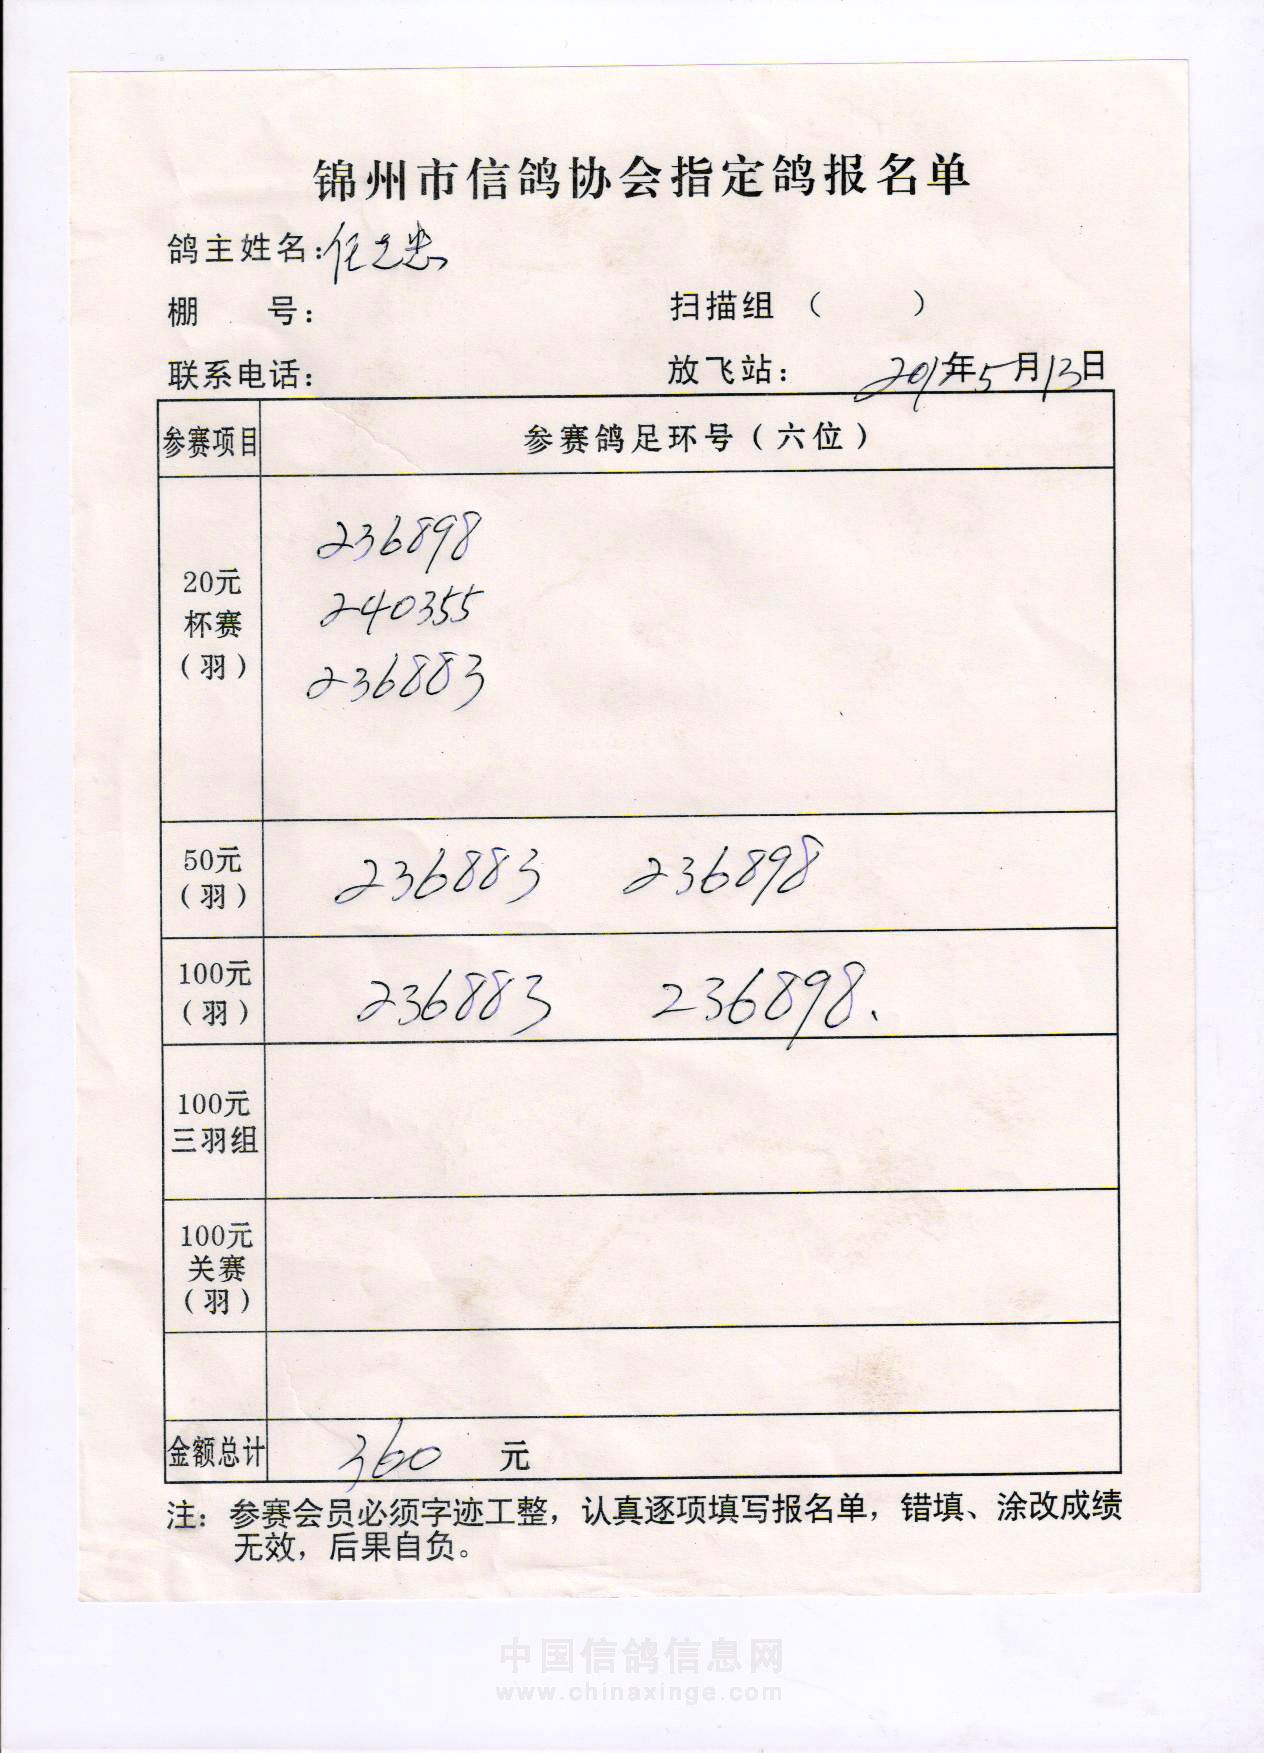 锦州市信鸽协会指定鸽报名单
鸽主姓名：任之忠
棚 号：
扫描组（ ）
联系电话：
放飞站： 2017年5月13日
参赛项目 参赛鸽足环号（六位）
20元
杯赛
（羽）
236898
240355
236883
50元
（羽）
236883 236898
100元
（羽）
236883 236898.
100元
三羽组
100元
关赛
（羽）
金额总计 360 元
注：参赛会员必须字迹工整，认真逐项填写报名单，错填、涂改成绩
无效，后果自负。
中国信鸽信息网
www.chinaxinge.com